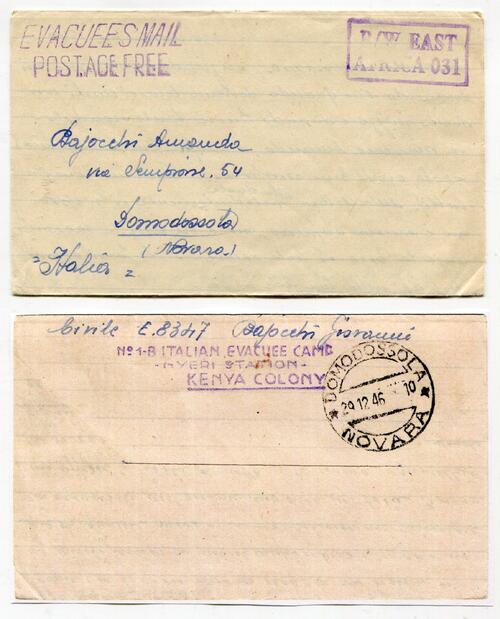 EVACUEES MAIL
POSTAGE FREE
P/W EAST
AFRICA 031
Bajocchi Amanda
via Sempione, 54
Domodossola
(Novara)
"Italia"
Civile E. 8347 Bajocchi Giovanni
No 1-B ITALIAN EVACUEE CAMP
-NYERI STATION-
KENYA COLONY
DOMODOSSOLA
29.12.46 10
NOVARA